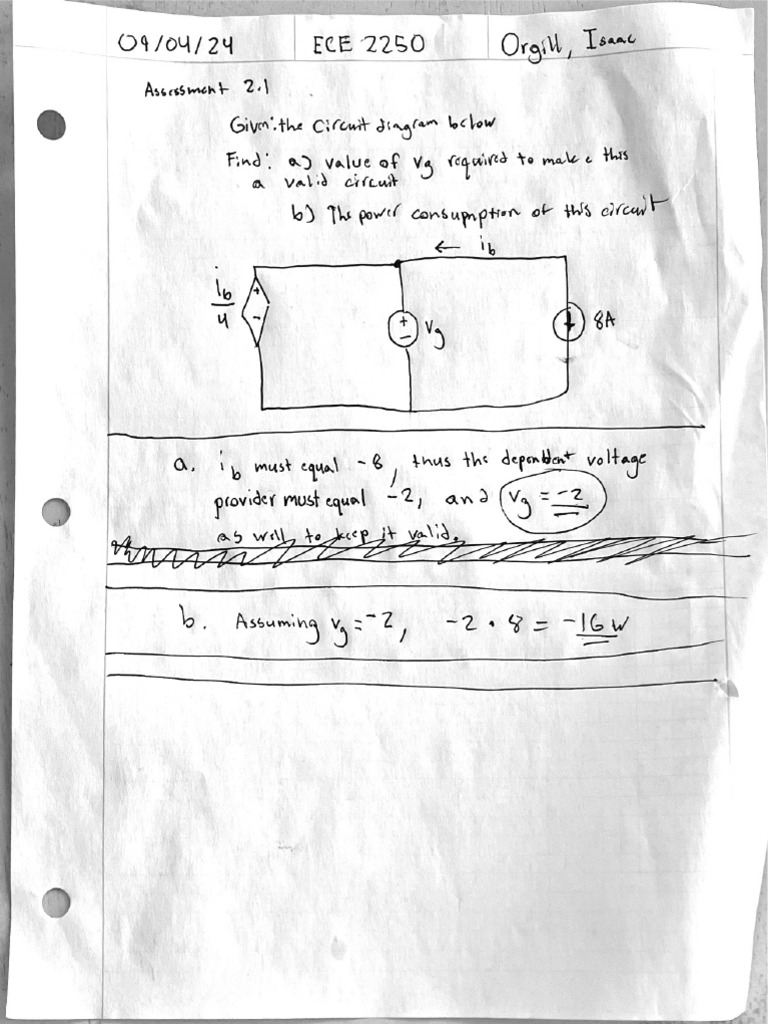 09/04/24 ECE 2250 Orgill, Isaac
Assessment 2.1
Given: the circuit diagram below
Find: a) value of vg required to make this
a valid circuit
b) The power consupnption of this circuit
← ib
ib/4 + - + - vg 8A
a. ib must equal -8, thus the dependent voltage
provider must equal -2, and vg = -2
as well to keep it valid.
b. Assuming vg = -2, -2 • 8 = -16 w